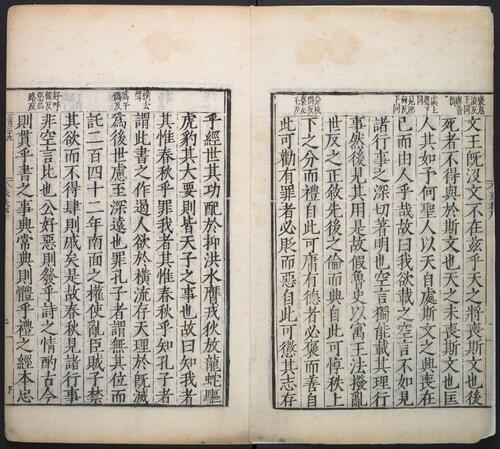 文王既沒文不在茲乎天之將喪斯文也後
死者不得與於斯文也天之未喪斯文也匡
人其如予何聖人以天自處斯文之興喪在
己而由人乎哉故曰我欲載之空言不如見
諸行事之深切著明也空言獨能載其理行
事然後見其用是故假魯史以寓王法撥亂
世反之正敘先後之倫而典自此可惇秩上
下之分而禮自此可庸有德者必褒而善自
此可勸有罪者必貶而惡自此可懲其志存
乎經世其功配於抑洪水膺戎狄放龍蛇驅
虎豹其大要則皆天子之事也故曰知我者
其惟春秋乎罪我者其惟春秋乎知孔子者
謂此書之作遏人欲於橫流存天理於旣滅
爲後世慮至深遠也罪孔子者謂無其位而
託二百四十二年南面之權使亂臣賊子禁
其欲而不得肆則戚矣是故春秋見諸行事
非空言比也公好惡則發乎詩之情酌古今
則貫乎書之事興常典則體乎禮之經本忠
爲于
僞反
好呼
報反
惡烏
路反